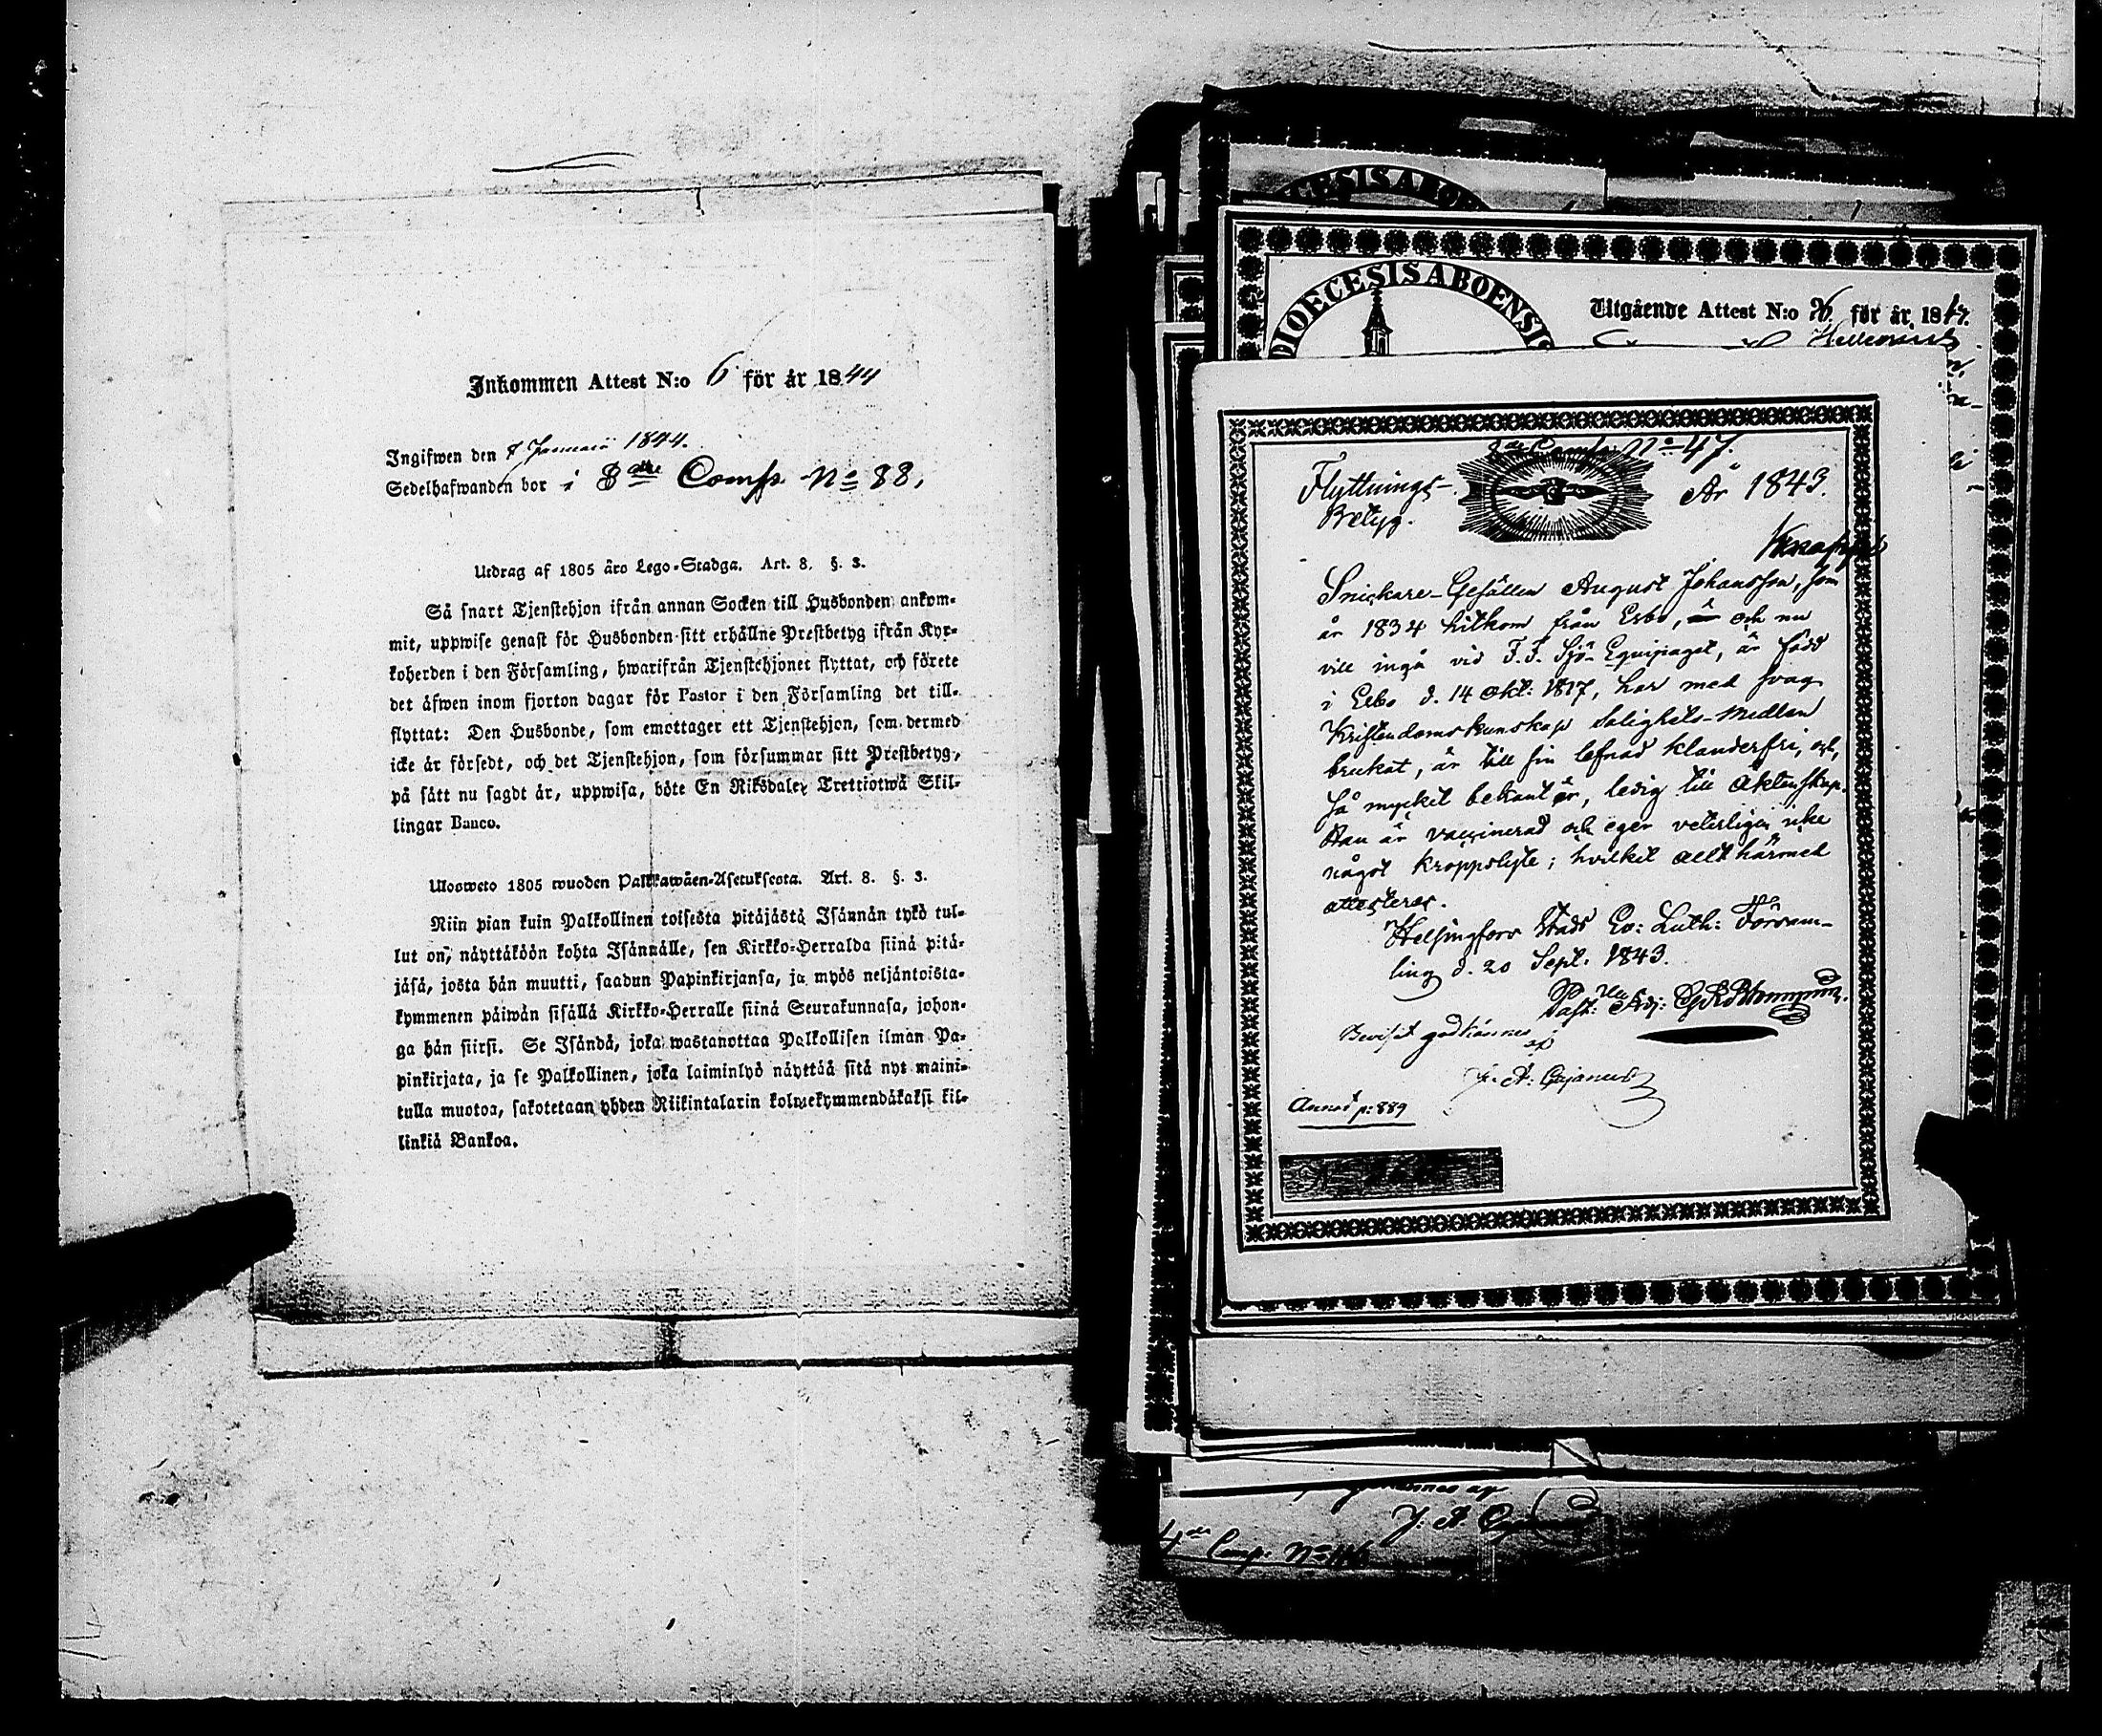 Inkommen Attest N:o 6 för år 1844
Ingifwen den 8 Januarii 1844.
Sedelhafwanden bor i 3die Comp. No 88.
Utdrag af 1805 års Lego-Stadga. Art. 8. §. 3.
Så snart Tjenstehjon ifrån annan Socken till Husbonden ankom-
mit, uppwise genast för Husbonden sitt erhållne Prestbetyg ifrån Kyr-
koherden i den Församling, hwarifrån Tjenstehjonet flyttat, och förete
det äfwen inom fjorton dagar för Pastor i den Församling det till-
flyttat: Den Husbonde, som emottager ett Tjenstehjon, som dermed
icke är försedt, och det Tjenstehjon, som försummar sitt Prestbetyg,
på sätt nu sagdt är, uppwisa, böte En Riksdaler Trettiotwå Skil-
lingar Banco.
Ulosweto 1805 wuoden Palkkawäen-Asetuksesta. Art. 8. §. 3.
Niin pian kuin Palkollinen toisesta pitäjästä Isännän tykö tul-
lut on, näyttäköön kohta Isännälle, sen Kirkko-Herralda siinä pitä-
jäsä, josta hän muutti, saadun Papinkirjansa, ja myös neljäntoista-
kymmenen päiwän sisällä Kirkko-Herralle siinä Seurakunnasa, johon-
ga hän siirsi. Se Isändä, joka wastanottaa Palkollisen ilman Pa-
pinkirjata, ja se Palkollinen, joka laiminlyö näyttää sitä nyt maini-
tulla muotoa, sakotetaan yhden Riikintalarin kolmekymmendäkaksi kil-
linkiä Bankoa.
DIOECESIS ABOENSIS
Utgående Attest N:o 26 för år 1847.
Comp. No 47.
Flyttnings-
Betyg.
År 1843.
Snickare-Gesällen August Johansson, som
år 1834 hitkom från Esbo, och nu
vill ingå vid F.F. Sjö-Equipaget, är född
i Esbo d. 14 Okt: 1817, har med svag
Kristendomskunskap Salighets-medlen
brukat, är till sin lefnad klanderfri, och,
så mycket bekant är, ledig till Äktenskap.
Han är vaccinerad och eger veterligen icke
något kroppslyte; hvilket allt härmed
attesteras.
Helsingfors Stads Ev: Luth: Försam-
ling d. 20 Sept. 1843.
Past: Adj:
Beviset godkännes
af
J. A. Cajanus
Annot p: 889
J: A.
4de Comp. No